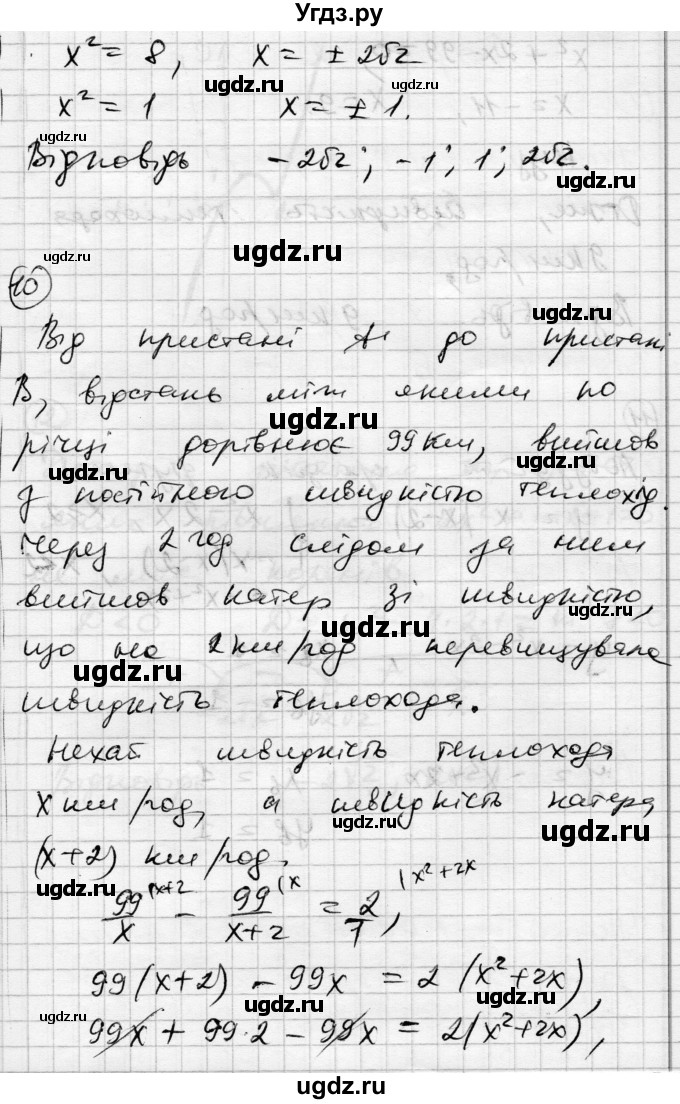 Угдз.ру
x² = 8, x = ± 2√2
x² = 1 x = ± 1.
Відповідь -2√2; -1; 1; 2√2.
10
Від пристані А до пристані
В, відстань між якими по
річці дорівнює 99 км, вийшов
з постійною швидкістю теплохід.
Через 2 год слідом за ним
вийшов катер зі швидкістю,
що на 2 км/год перевищувала
швидкість теплохода.
Нехай швидкість теплохода
x км/год, а швидкість катера
(x+2) км/год.
99/x (x+2 - 99/(x+2) (x = 2/1, |x²+2x
99(x+2) - 99x = 2(x²+2x),
99x + 99·2 - 99x = 2(x²+2x),
ugdz.ru